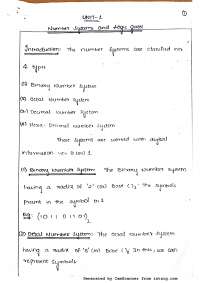 ①
UNIT-1
Number Systems and Logic Gates
Introduction: The number systems are classified into
4 types
(i) Binary Number System
(ii) Octal Number System
(iii) Decimal Number System
(iv) Hexa-Decimal number System
These Systems are worked with digital
information i.e. 0 and 1
(1) Binary Number System: The Binary Number System
having a radix of '2' (or) Base ( )₂. The symbols
present in the symbol 0,1
Eg: (1011 01101)₂
(2) Octal Number System: The octal number system
having a radix of '8' (or) Base ( )₈ In this, we can
represent symbols
Generated by CamScanner from intsig.com